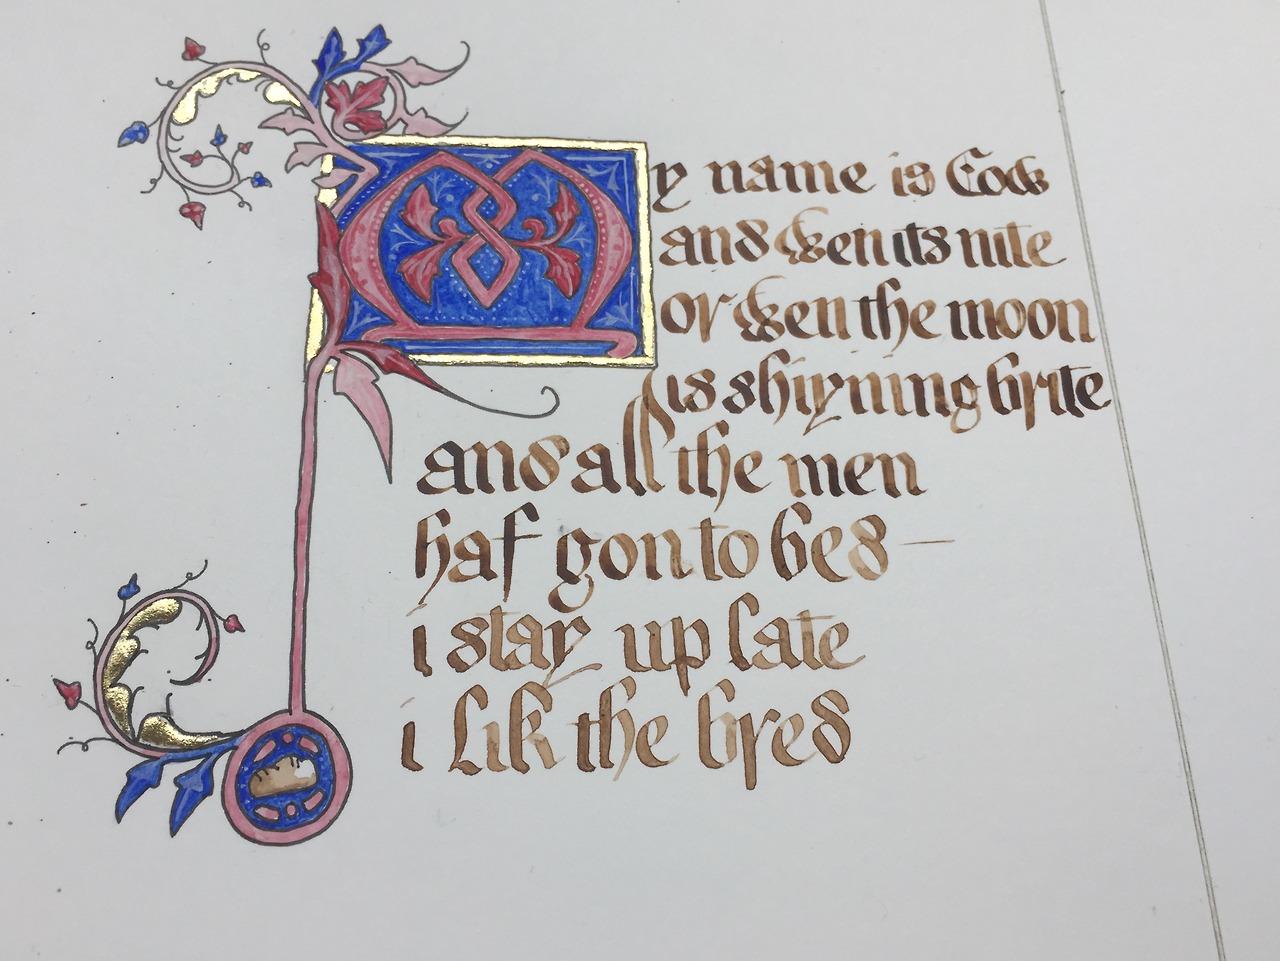 My name is Cow
and wen its nite
or wen the moon
is shiyning brite
and all the men
haf gon to bed —
i stay up late
i lik the bred